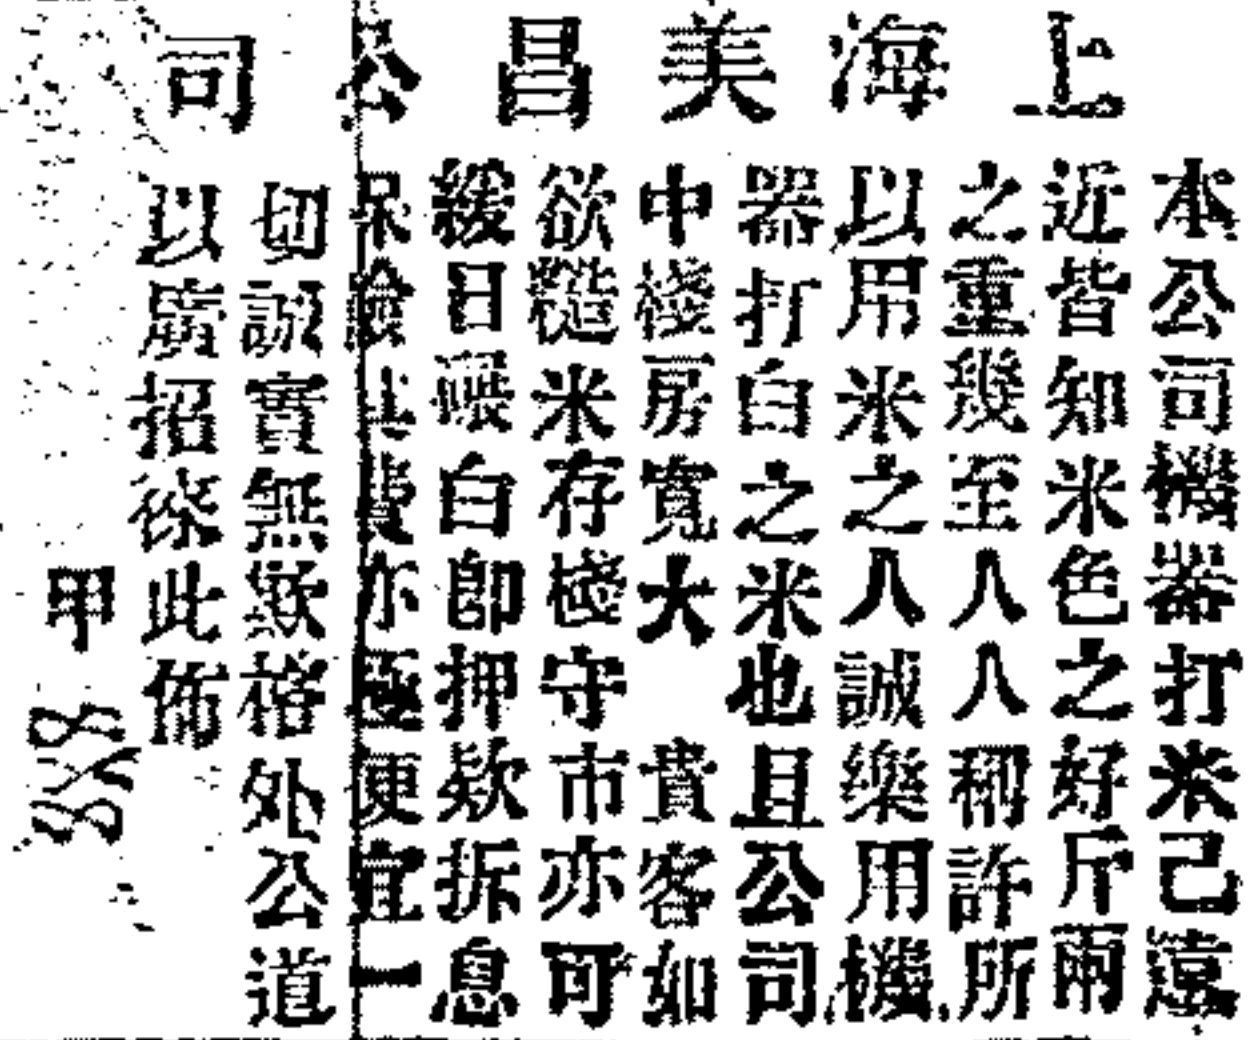 上海美昌公司
本公司機器打米己遠
近皆知米色之好斤兩
之重幾至人人稱許所
以用米之人誠樂用機
器打白之米也且公司
中棧房寬大 貴客如
欲糙米存棧守市亦可
緩日礱白卽押欵拆息
保險其費亦極便宜一
切誠實無欺格外公道
以廣招徠此佈
甲